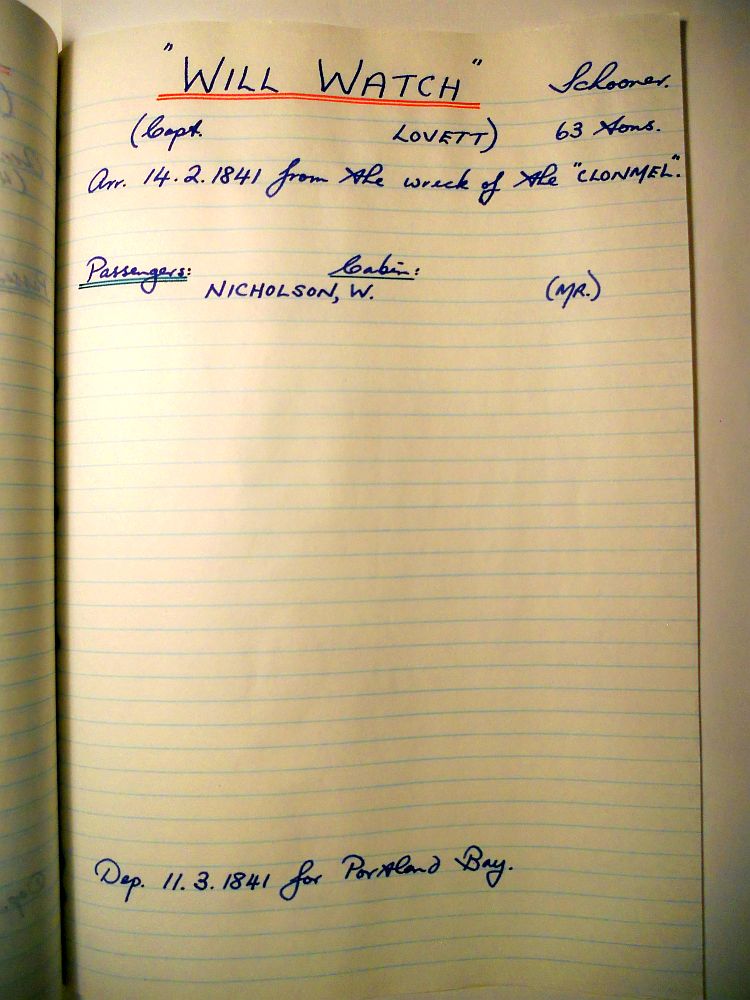 "WILL WATCH" Schooner.
(Capt. LOVETT) 63 tons.
Arr. 14.2.1841 from the wreck of the "CLONMEL".
Passengers: Cabin:
NICHOLSON, W. (MR.)
Dep. 11.3.1841 for Portland Bay.